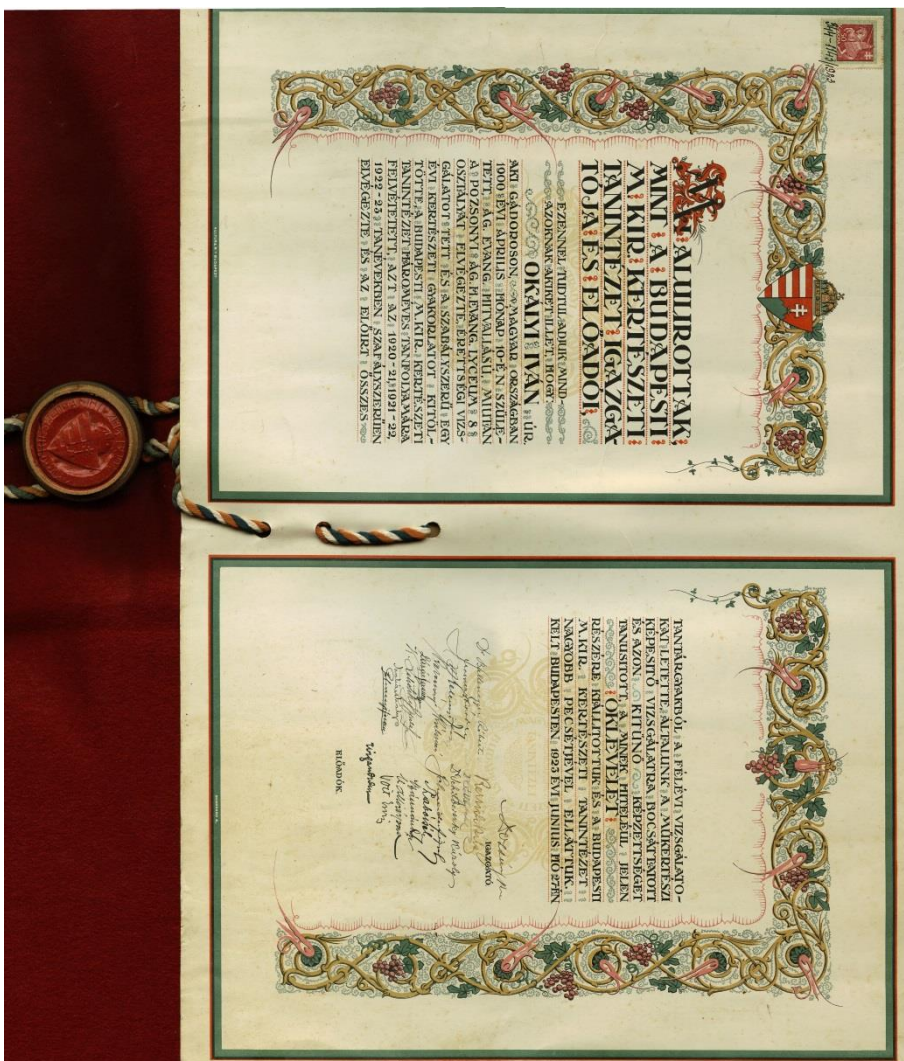 MI ALULIROTTAK,
MINT A BUDAPESTI
M. KIR. KERTÉSZETI
TANINTÉZET IGAZGA-
TÓJA ÉS ELŐADÓI,
EZENNEL TUDTUL ADJUK MIND-
AZOKNAK, AKIKET ILLET, HOGY
OKÁLYI IVÁN ÚR,
AKI GÁDOROSON, MAGYAR ORSZÁGBAN
1900 ÉVI ÁPRILIS HÓNAP 10-ÉN SZÜLE-
TETT, ÁG. EVANG. HITVALLÁSÚ, MIUTÁN
A POZSONYI ÁG. H. EVANG. LYCEUM 8
OSZTÁLYÁT ELVÉGEZTE, ÉRETTSÉGI VIZS-
GÁLATOT TETT ÉS A SZABÁLYSZERŰ EGY
ÉVI KERTÉSZETI GYAKORLATOT KITÖL-
TÖTTE, A BUDAPESTI M. KIR. KERTÉSZETI
TANINTÉZET HÁROMÉVES TANFOLYAMÁRA
FELVÉTETETT, AZT AZ 1920-21, 1921-22,
1922-23 TANÉVEKBEN SZABÁLYSZERŰEN
ELVÉGEZTE ÉS AZ ELŐIRT ÖSSZES
TANTÁRGYAKBÓL A FÉLÉVI VIZSGÁLATO-
KAT LETETTE, ÁLTALUNK A MŰKERTÉSZI
KÉPESITŐ VIZSGÁLATRA BOCSÁTTATOTT
ÉS AZON KITŰNŐ KÉPZETTSÉGET
TANUSITOTT, A MINEK HITELÉÜL JELEN
OKLEVELET
RÉSZÉRE KIÁLLITOTTUK ÉS A BUDAPESTI
M. KIR. KERTÉSZETI TANINTÉZET
NAGYOBB PECSÉTJÉVEL ELLÁTTUK.
KELT BUDAPESTEN 1923 ÉVI JUNIUS HÓ 27ÉN
IGAZGATÓ
ELŐADÓK.